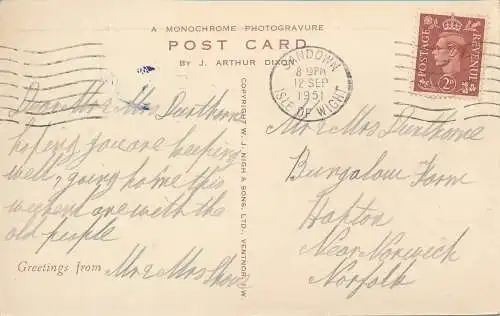 A MONOCHROME PHOTOGRAVURE
POST CARD
BY J. ARTHUR DIXON
SANDOWN
8 PM
12 SEP
1951
ISLE OF WIGHT
POSTAGE
REVENUE
2D
COPYRIGHT W. J. NIGH & SONS, LTD., VENTNOR, I.W.
Dear Mr & Mrs
hoping you are keeping
well, going home this
weekend are with the
old people
Greetings from Mr & Mrs
Mr & Mrs
Bungalow Farm
Hapton
Near Norwich
Norfolk